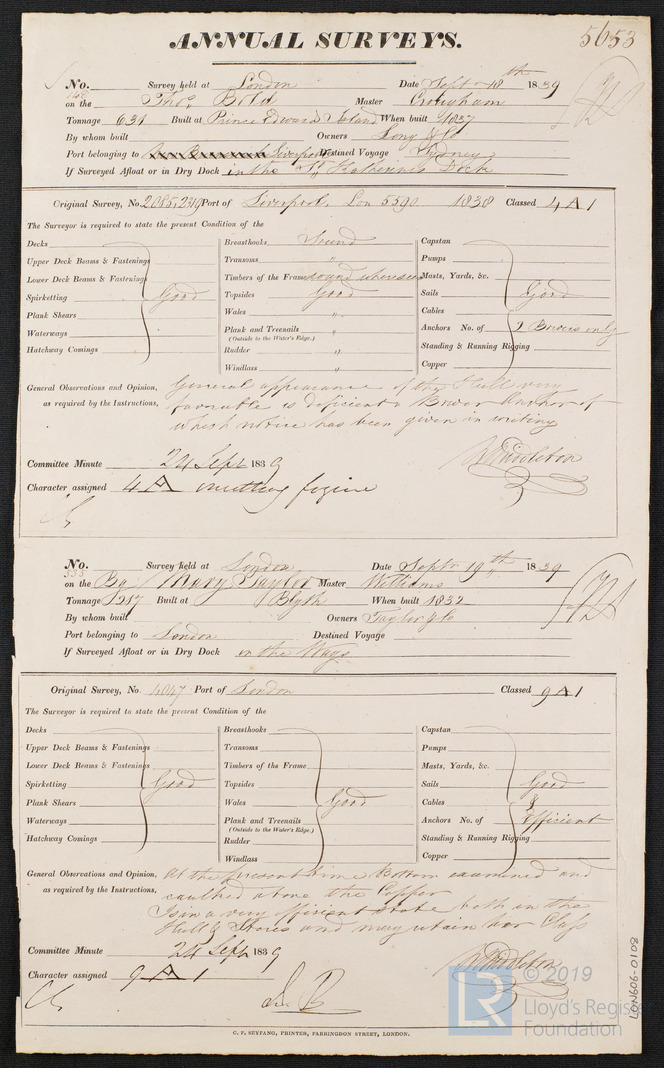 5653
ANNUAL SURVEYS.
No. Survey held at London Date Sept 18th 1839
on the Thos. Bold Master
Tonnage 631 Built at Prince Edward Island When built 1837
By whom built Owners Long & Co
Port belonging to Liverpool Destined Voyage Sydney
If Surveyed Afloat or in Dry Dock in the St Katherines Dock
Original Survey, No. Port of Liverpool, Lon 5590 1838 Classed 4 A 1
The Surveyor is required to state the present Condition of the
Decks
Upper Deck Beams & Fastenings
Lower Deck Beams & Fastenings
Spirketting Good
Plank Shears
Waterways
Hatchway Comings
Breasthooks Sound
Transoms "
Timbers of the Frame sound where seen
Topsides Good
Wales "
Plank and Treenails "
(Outside to the Water's Edge.)
Rudder "
Windlass "
Capstan
Pumps
Masts, Yards, &c.
Sails Good
Cables
Anchors No. of 2 Bowers only
Standing & Running Rigging
Copper
General Observations and Opinion, General appearance of the Hull very
as required by the Instructions, favorable is deficient a Bower Anchor of
which notice has been given in writing
Committee Minute 24 Sept 1839
Character assigned 4 A
No. Survey held at London Date Septr 19th 1839
on the Bq Mary Taylor Master Williams
Tonnage Built at Blyth When built 1832
By whom built Owners Taylor & Co
Port belonging to London Destined Voyage
If Surveyed Afloat or in Dry Dock on the Ways
Original Survey, No. 4047 Port of London Classed 9 A 1
The Surveyor is required to state the present Condition of the
Decks
Upper Deck Beams & Fastenings
Lower Deck Beams & Fastenings
Spirketting Good
Plank Shears
Waterways
Hatchway Comings
Breasthooks
Transoms
Timbers of the Frame
Topsides
Wales Good
Plank and Treenails
(Outside to the Water's Edge.)
Rudder
Windlass
Capstan
Pumps
Masts, Yards, &c.
Sails Good
Cables &
Anchors No. of efficient
Standing & Running Rigging
Copper
General Observations and Opinion, At the present time Bottom examined and
as required by the Instructions, caulked above the Copper
Is in a very efficient state both in the
Hull & Stores and may retain her Class
Committee Minute 24 Sept 1839
Character assigned 9 A 1
C. F. SEYFANG, PRINTER, FARRINGDON STREET, LONDON.
LON606-0108
LR
© 2019
Lloyd's Register
Foundation